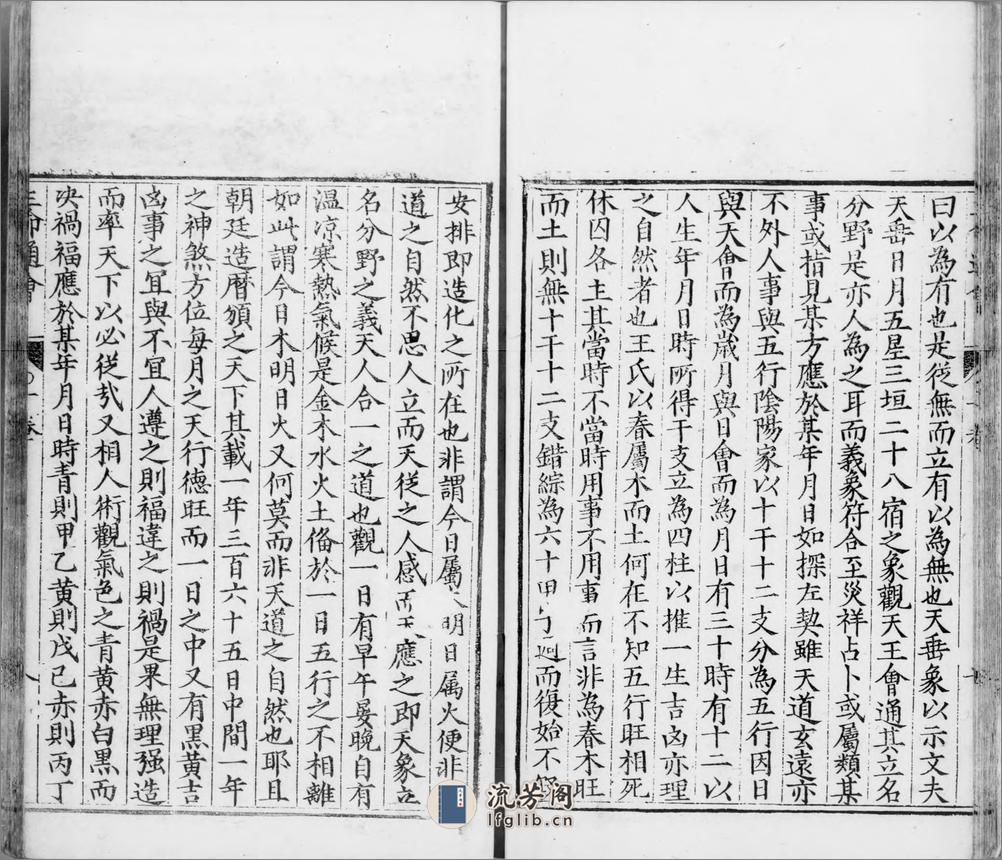 曰以為有也是從無而立有以為無也天垂象以示文夫
天岳日月五星三垣二十八宿之象觀天王會通其立名
分野是亦人為之耳而義象符合至災祥占卜或屬類某
事或指見某方應於某年月日如探左契雖天道玄遠亦
不外人事與五行陰陽家以十干十二支分為五行因日
與天會而為歲月與日會而為月日有三十時有十二以
人生年月日時所得干支立為四柱以推一生吉凶亦理
之自然者也王氏以春屬木而土何在不知五行旺相死
休囚各主其當時不當時用事不用事而言非為春木旺
而土則無十干十二支錯綜為六十甲子週而復始不
安排即造化之所在也非謂今日屬 明日属火便非
道之自然不思人立而天從之人感而天應之即天象立
名分野之義天人合一之道也觀一日有早午晏晚自有
溫凉寒熱氣候是金木水火土俻於一日五行之不相離
如此謂今日木明日火又何莫而非天道之自然也耶且
朝廷造曆頒之天下其載一年三百六十五日中間一年
之神煞方位每月之天行德旺而一日之中又有黑黄吉
凶事之冝與不冝人遵之則福違之則禍是果無理强造
而率天下以必從㢤又相人術觀氣色之青黄赤白黑而
决禍福應於某年月日時青則甲乙黄則戊己赤則丙丁
三命通會
卷一
流芳阁
lfglib.cn